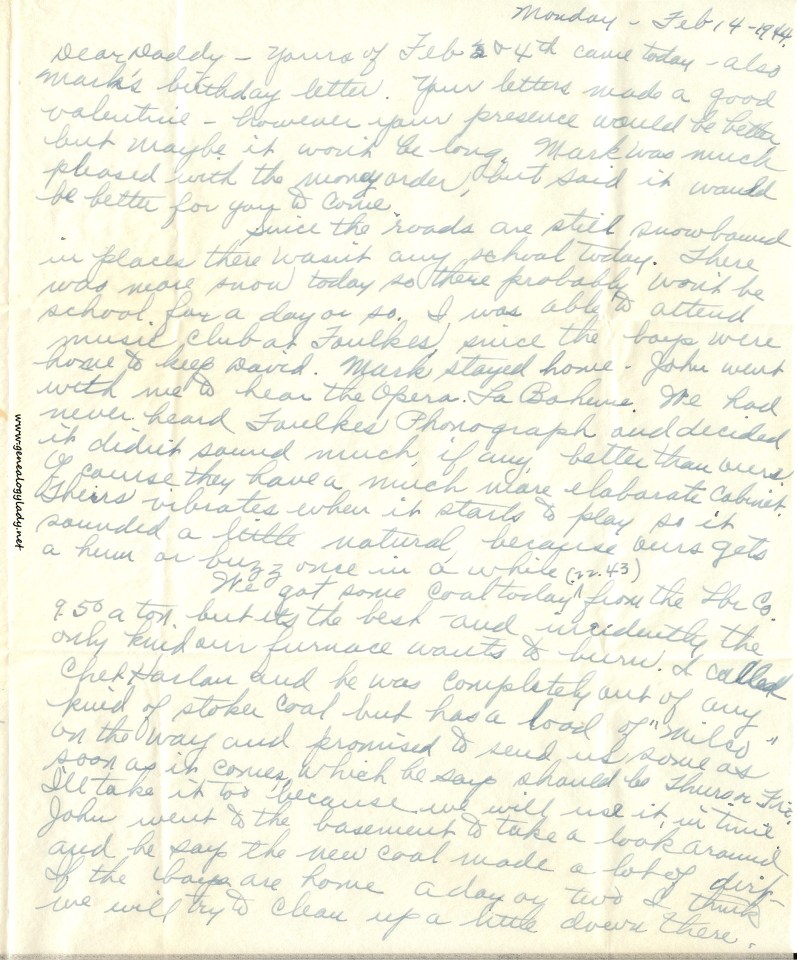 Monday - Feb 14 - 1944.
Dear Daddy - Yours of Feb 3 & 4th came today - also
Mark's birthday letter. Your letters made a good
valentine - however your presence would be better
but maybe it won't be long. Mark was much
pleased with the money order, but said it would
be better for you to come.
Since the roads are still snowbound
in places there wasn't any school today. There
was more snow today so there probably won't be
school for a day or so. I was able to attend
music club at Faulkes, since the boys were
home to keep David. Mark stayed home - John went
with me to hear the Opera. La Boheme. We had
never heard Faulkes Phonograph and decided
it didn't sound much, if any, better than ours.
Of course they have a much more elaborate cabinet.
Theirs vibrates when it starts to play so it
sounded a little natural because ours gets
a hum or buzz once in a while
We got some coal today (22.43) from the Lbr Co.
9.50 a ton. but its the best - and incidently, the
only kind our furnace wants to burn. I called
Chet Harlan and he was completely out of any
kind of stoker coal but has a load of "Milso"
on the way and promised to send us some as
soon as it comes, which he says should be Thurs or Fri.
I'll take it too because we will use it in time
John went to the basement to take a look around
and he says the new coal made a lot of dirt -
If the boys are home a day or two I think
we will try to clean up a little down there.
www.genealogylady.net